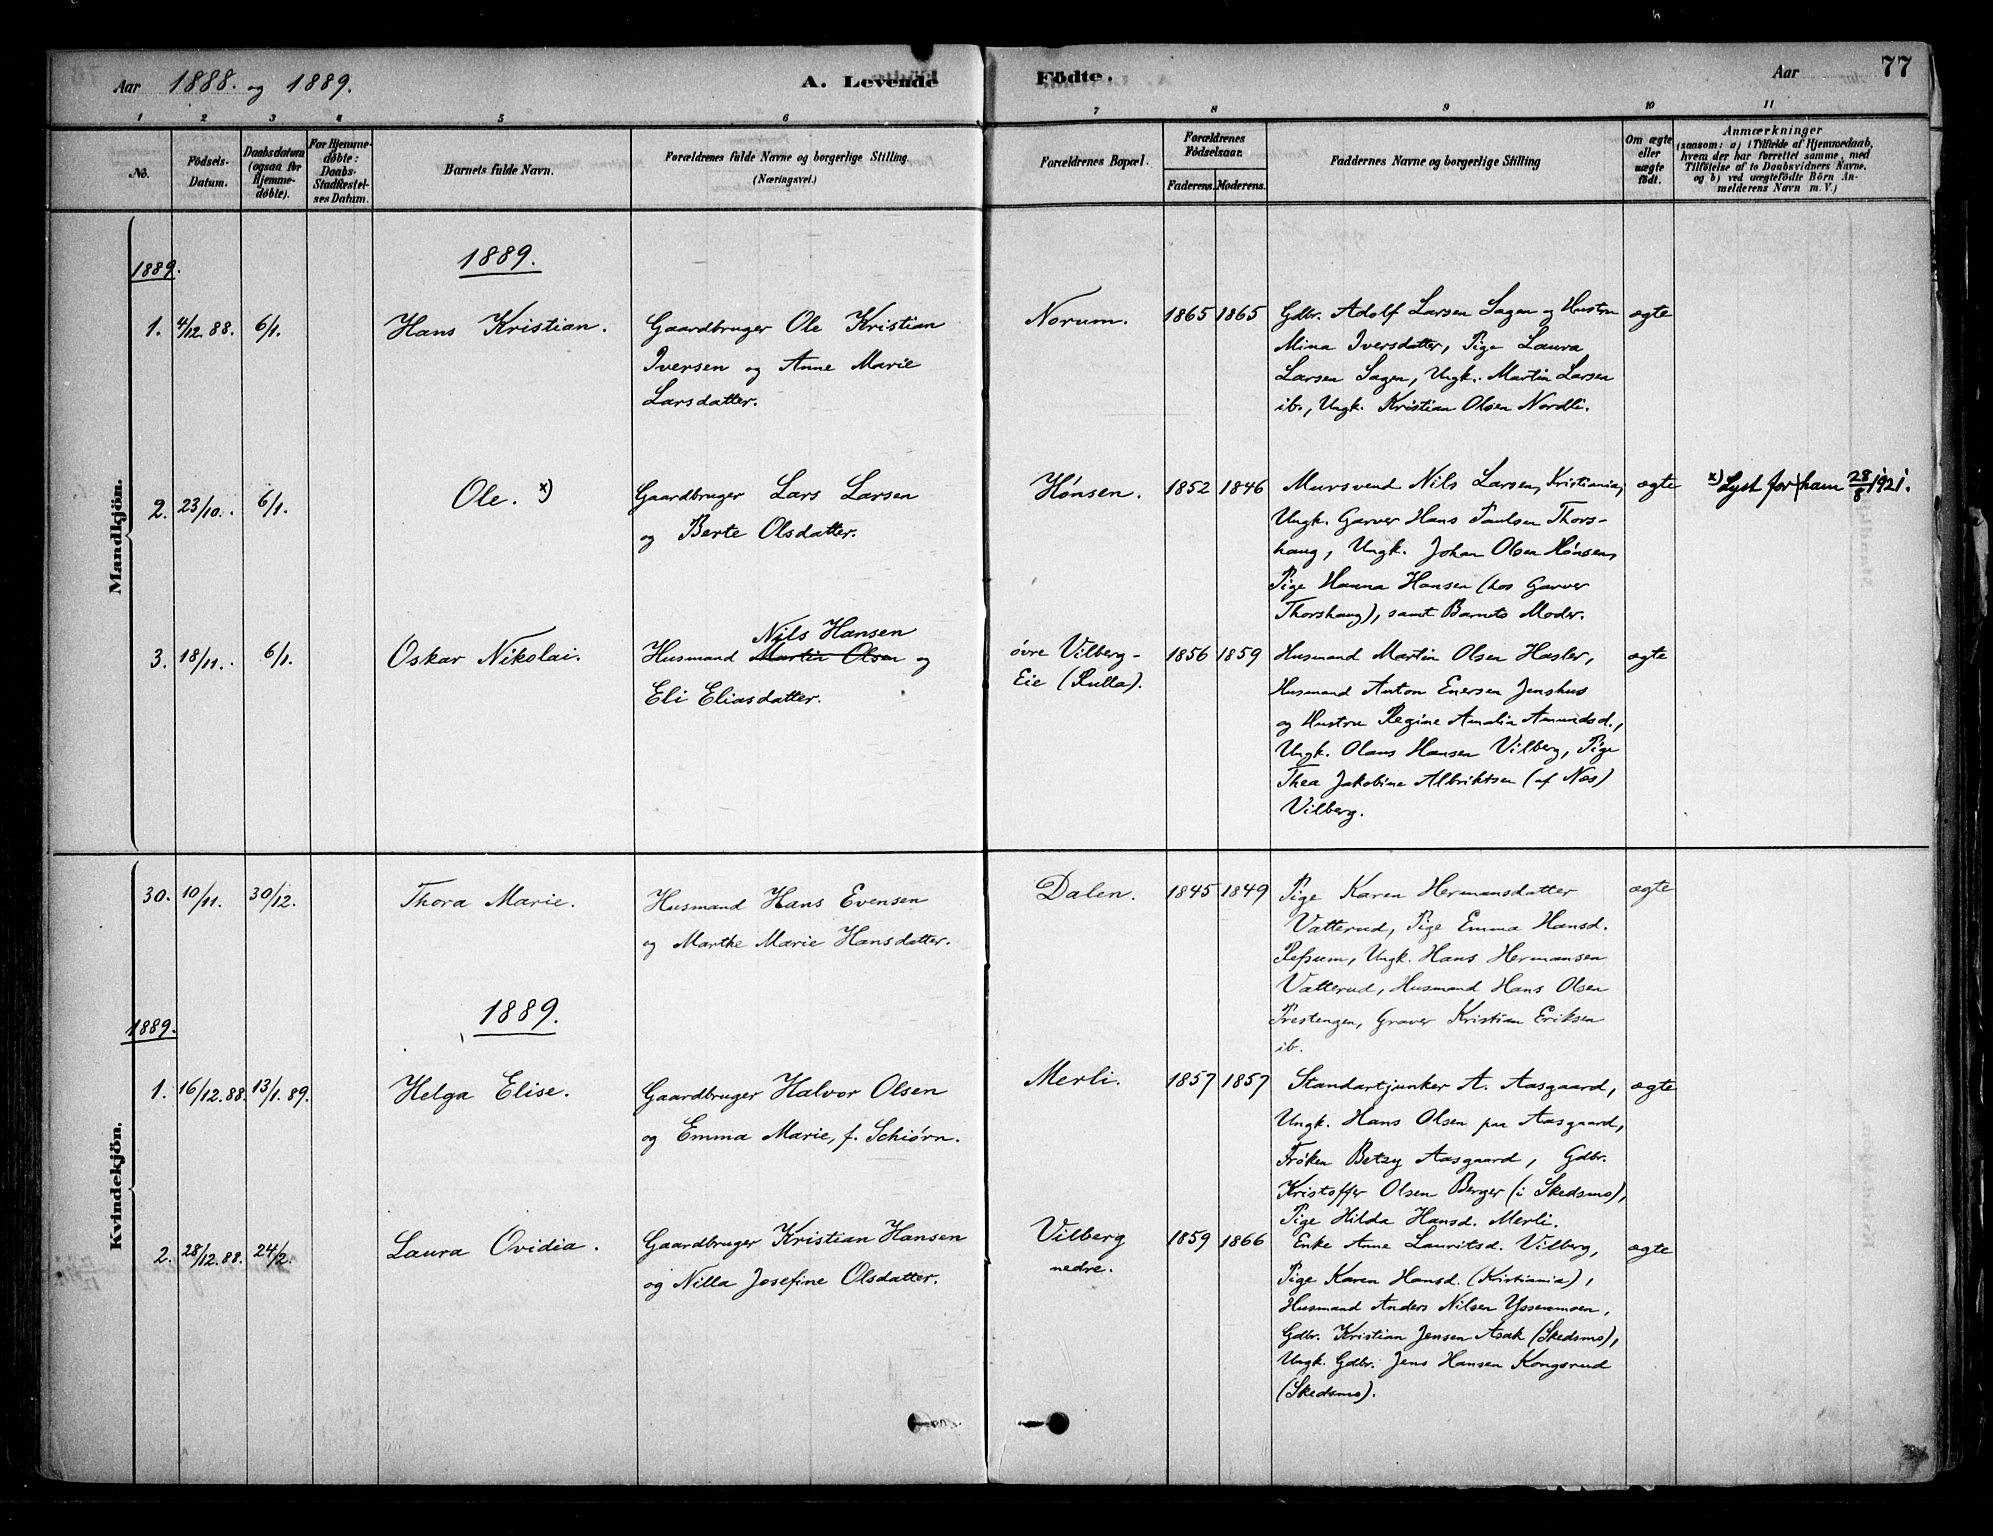 Aar 1888. og 1889.
A. Levende
Födte.
Aar
77
1 2 3 4 5 6 7 8 9 10 11
No.
Födsels-
Datum.
Daabsdatum
(ogsaa for
Hjemme-
döbte).
For Hjemme-
döbte:
Daabs-
Stadfæstel-
ses Datum.
Barnets fulde Navn.
Forældrenes fulde Navne og borgerlige Stilling
(Næringsvei.)
Forældrenes Bopæl.
Forældrenes
Födselsaar.
Faderens. Moderens.
Faddernes Navne og borgerlige Stilling
Om ægte
eller
uægte
födt.
Anmærkninger
(saasom: a) i Tilfælde af Hjemmedaab,
hvem der har forrettet samme, med
Tilföielse af to Daabsvidners Navne,
og b) ved uægtefödte Börn An-
melderens Navn m. V.)
Mandkjön.
1889.
1889.
1. 4/12. 88. 6/1. Hans Kristian.
Gaardbruger Ole Kristian
Iversen og Anne Marie
Larsdatter.
Norum. 1865 1865
Gdbr. Adolf Larsen Sagen og Hustru
Mina Iversdatter, Pige Laura
Larsen Sagen, Ungk. Martin Larsen
ib., Ungk. Kristian Olsen Nordli.
ægte
2. 23/10. 6/1. Ole. x)
Gaardbruger Lars Larsen
og Berte Olsdatter.
Hønsen. 1852 1846
Mursvend Nils Larsen, Kristiania,
Ungk. Garver Hans Paulsen Thors-
haug, Ungk. Johan Olsen Hønsen,
Pige Hanna Hansen (hos Garver
Thorshaug), samt Barnets Moder.
ægte
x) Lyst for ham 28/8 1921.
3. 18/11. 6/1. Oskar Nikolai.
Nils Hansen
Husmand Martin Olsen og
Eli Eliasdatter.
øvre Vilberg-
Eie (Kulla).
1856 1859
Husmand Martin Olsen Hasler,
Husmand Anton Enersen Jenshus
og Hustru Regine Amalia Amundsd.,
Ungk. Olaus Hansen Vilberg, Pige
Thea Jakobine Albriktsen (af Næs)
Vilberg.
ægte
Kvindekjön.
30. 10/11. 30/12. Thora Marie.
Husmand Hans Evensen
og Marthe Marie Hansdatter.
Dalen. 1845 1849
Pige Karen Hermansdatter
Vatterud, Pige Emma Hansd.
Refsum, Ungk. Hans Hermansen
Vatterud, Husmand Hans Olsen
Prestengen, Graver Kristian Eriksen
ib.
ægte
1889.
1889.
1. 16/12. 88. 13/1. 89. Helga Elise.
Gaardbruger Halvor Olsen
og Emma Marie, f. Schiørn.
Merli. 1857 1857
Standartjunker A. Aasgaard,
Ungk. Hans Olsen paa Aasgaard,
Frøken Betzy Aasgaard, Gdbr.
Kristoffer Olsen Berger (i Skedsmo),
Pige Hilda Hansd. Merli.
ægte
2. 28/12. 88. 24/2. Laura Ovidia.
Gaardbruger Kristian Hansen
og Nilla Josefine Olsdatter.
Vilberg
nedre.
1859 1866
Enke Anne Lauritsd. Vilberg,
Pige Karen Hansd. (Kristiania),
Husmand Anders Nilsen Yssenmoen,
Gdbr. Kristian Jensen Asak (Skedsmo),
Ungk. Gdbr. Jens Hansen Kongsrud
(Skedsmo).
ægte